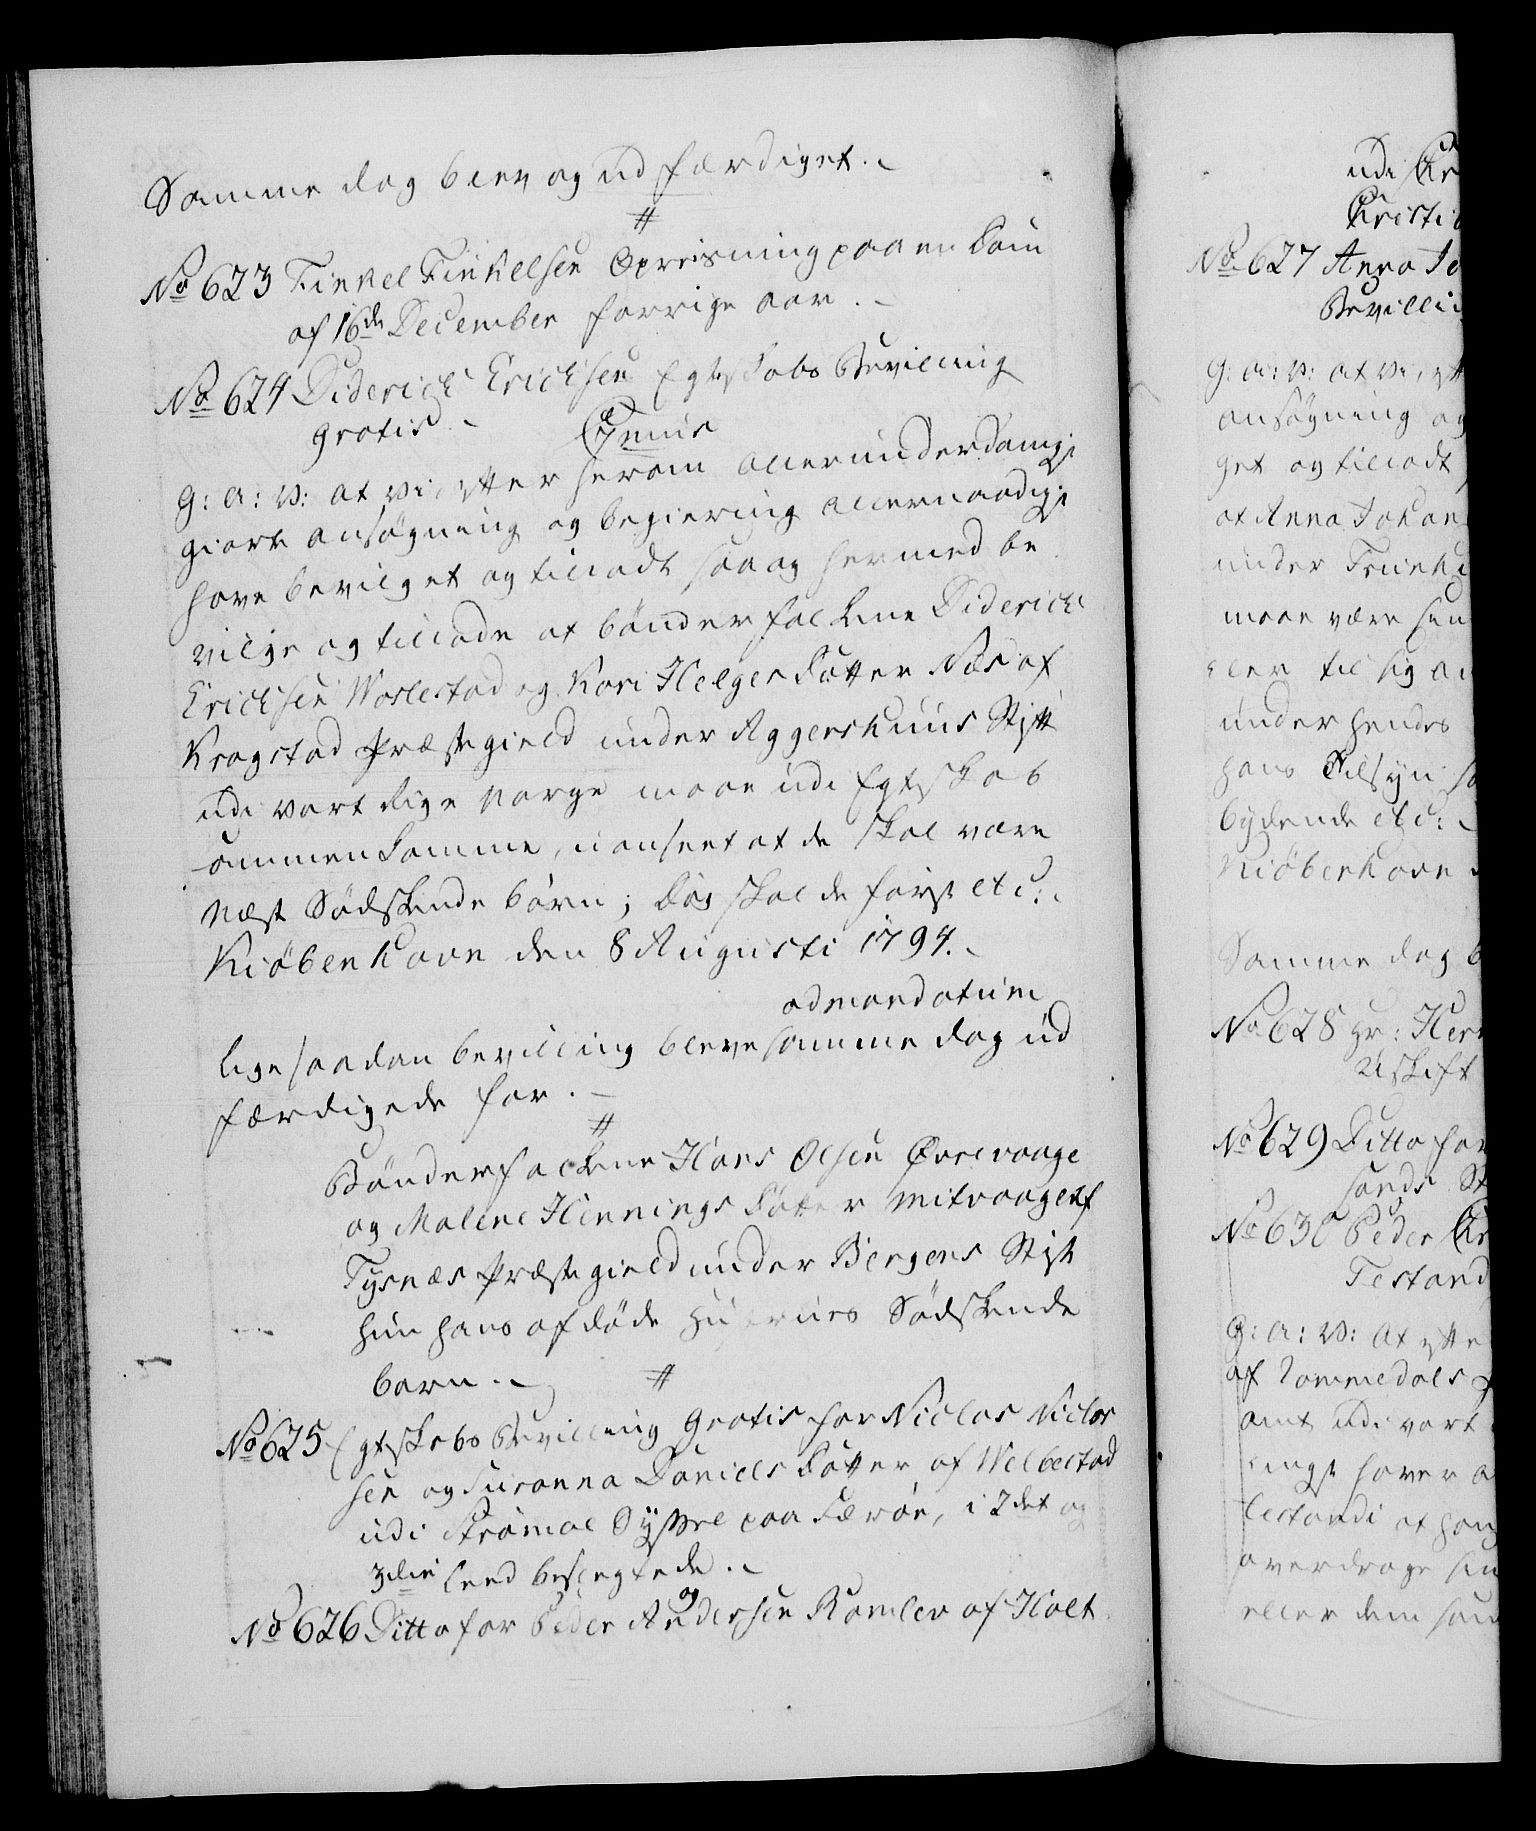 Samme dag blev og udfærdiget.
#
No 623 Tinkel Tinkelsen Opreisning paa en Dom
af 16de December forrige Aar.
No 624 Diderich Erichsen Egteskabs Bevilling
gratis. Genus
G: A: V: at vi, efter herom allerunderdanigst
giorte ansøgning og begiering allernaadigst
have bevilget og tilladt saa og hermed be
vilge og tillade at bønderfolkene Diderich
Erichsen Woslestad og Kari Helgesdatter Næs af
Kragstad Præstegield under Aggershuus Stift
udi vort Rige Norge maae udi Egteskab
sammenkomme, uanseet at de skal være
Næst Sødskende børn; dog skal de først etc:
Kiøbenhavn den 8 Augusti 1794.
ad mandatum
lige saadan bevilling bleve samme dag ud
færdigede for.
#
Bønderfolkene Hans Olsen Øvrevaage
og Malene Hennings datter Mitvaage af
Tysnæs Præstegield under Bergens Stift
hun hans afdøde Hustrues Sødskende
barn. #
No 625 Egteskabs Bevilling Gratis for Niclas Niclas
sen og Susanna Daniels datter af Welbestad
udi Strømøe Syssel paa Færøe, i 2det og
3die Leed beslegtede.
No 626 Ditto for Peder Andersen Ramlev og af Holt
udi
Cristi
No 627 Anna Jo
Bevilli
G: A: V: at vi, eft
ansøgning og
get og tilladt
at Anna Johan
under Trunhi
maae være sin
eller til sig a
under hendes
hans Tilsyn
bydende etc:
Kiøbenhavn
Samme dag b
No 628 Hr: Her
Uskift
No 629 Ditto for
sands St
No 630 Peder
Testand
G: A: V: at efte
af Rommedals
amt udi vort
haver
testandi at han
overdrage sin
eller dem som